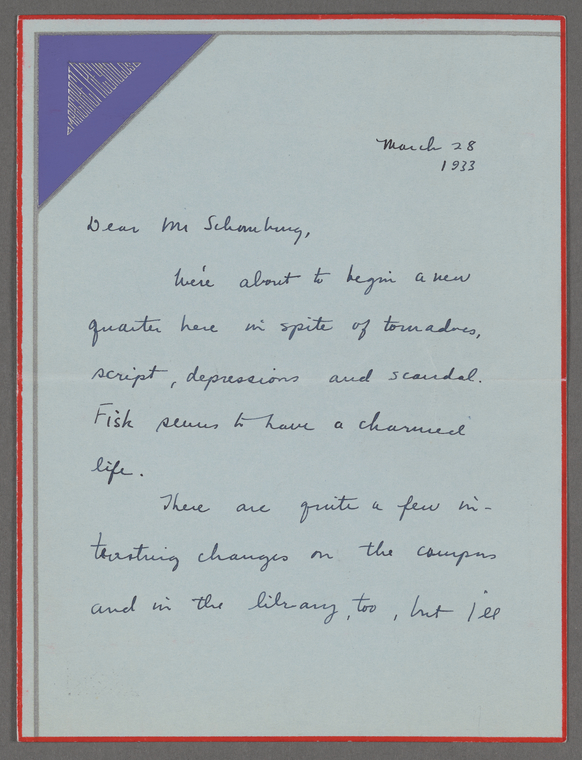 March 28
1933
Dear Mr Schomburg,
We're about to begin a new
quarter here in spite of tornadoes,
script, depressions and scandal.
Fisk seems to have a charmed
life.
There are quite a few in-
teresting changes on the campus
and in the library, too, but I'll